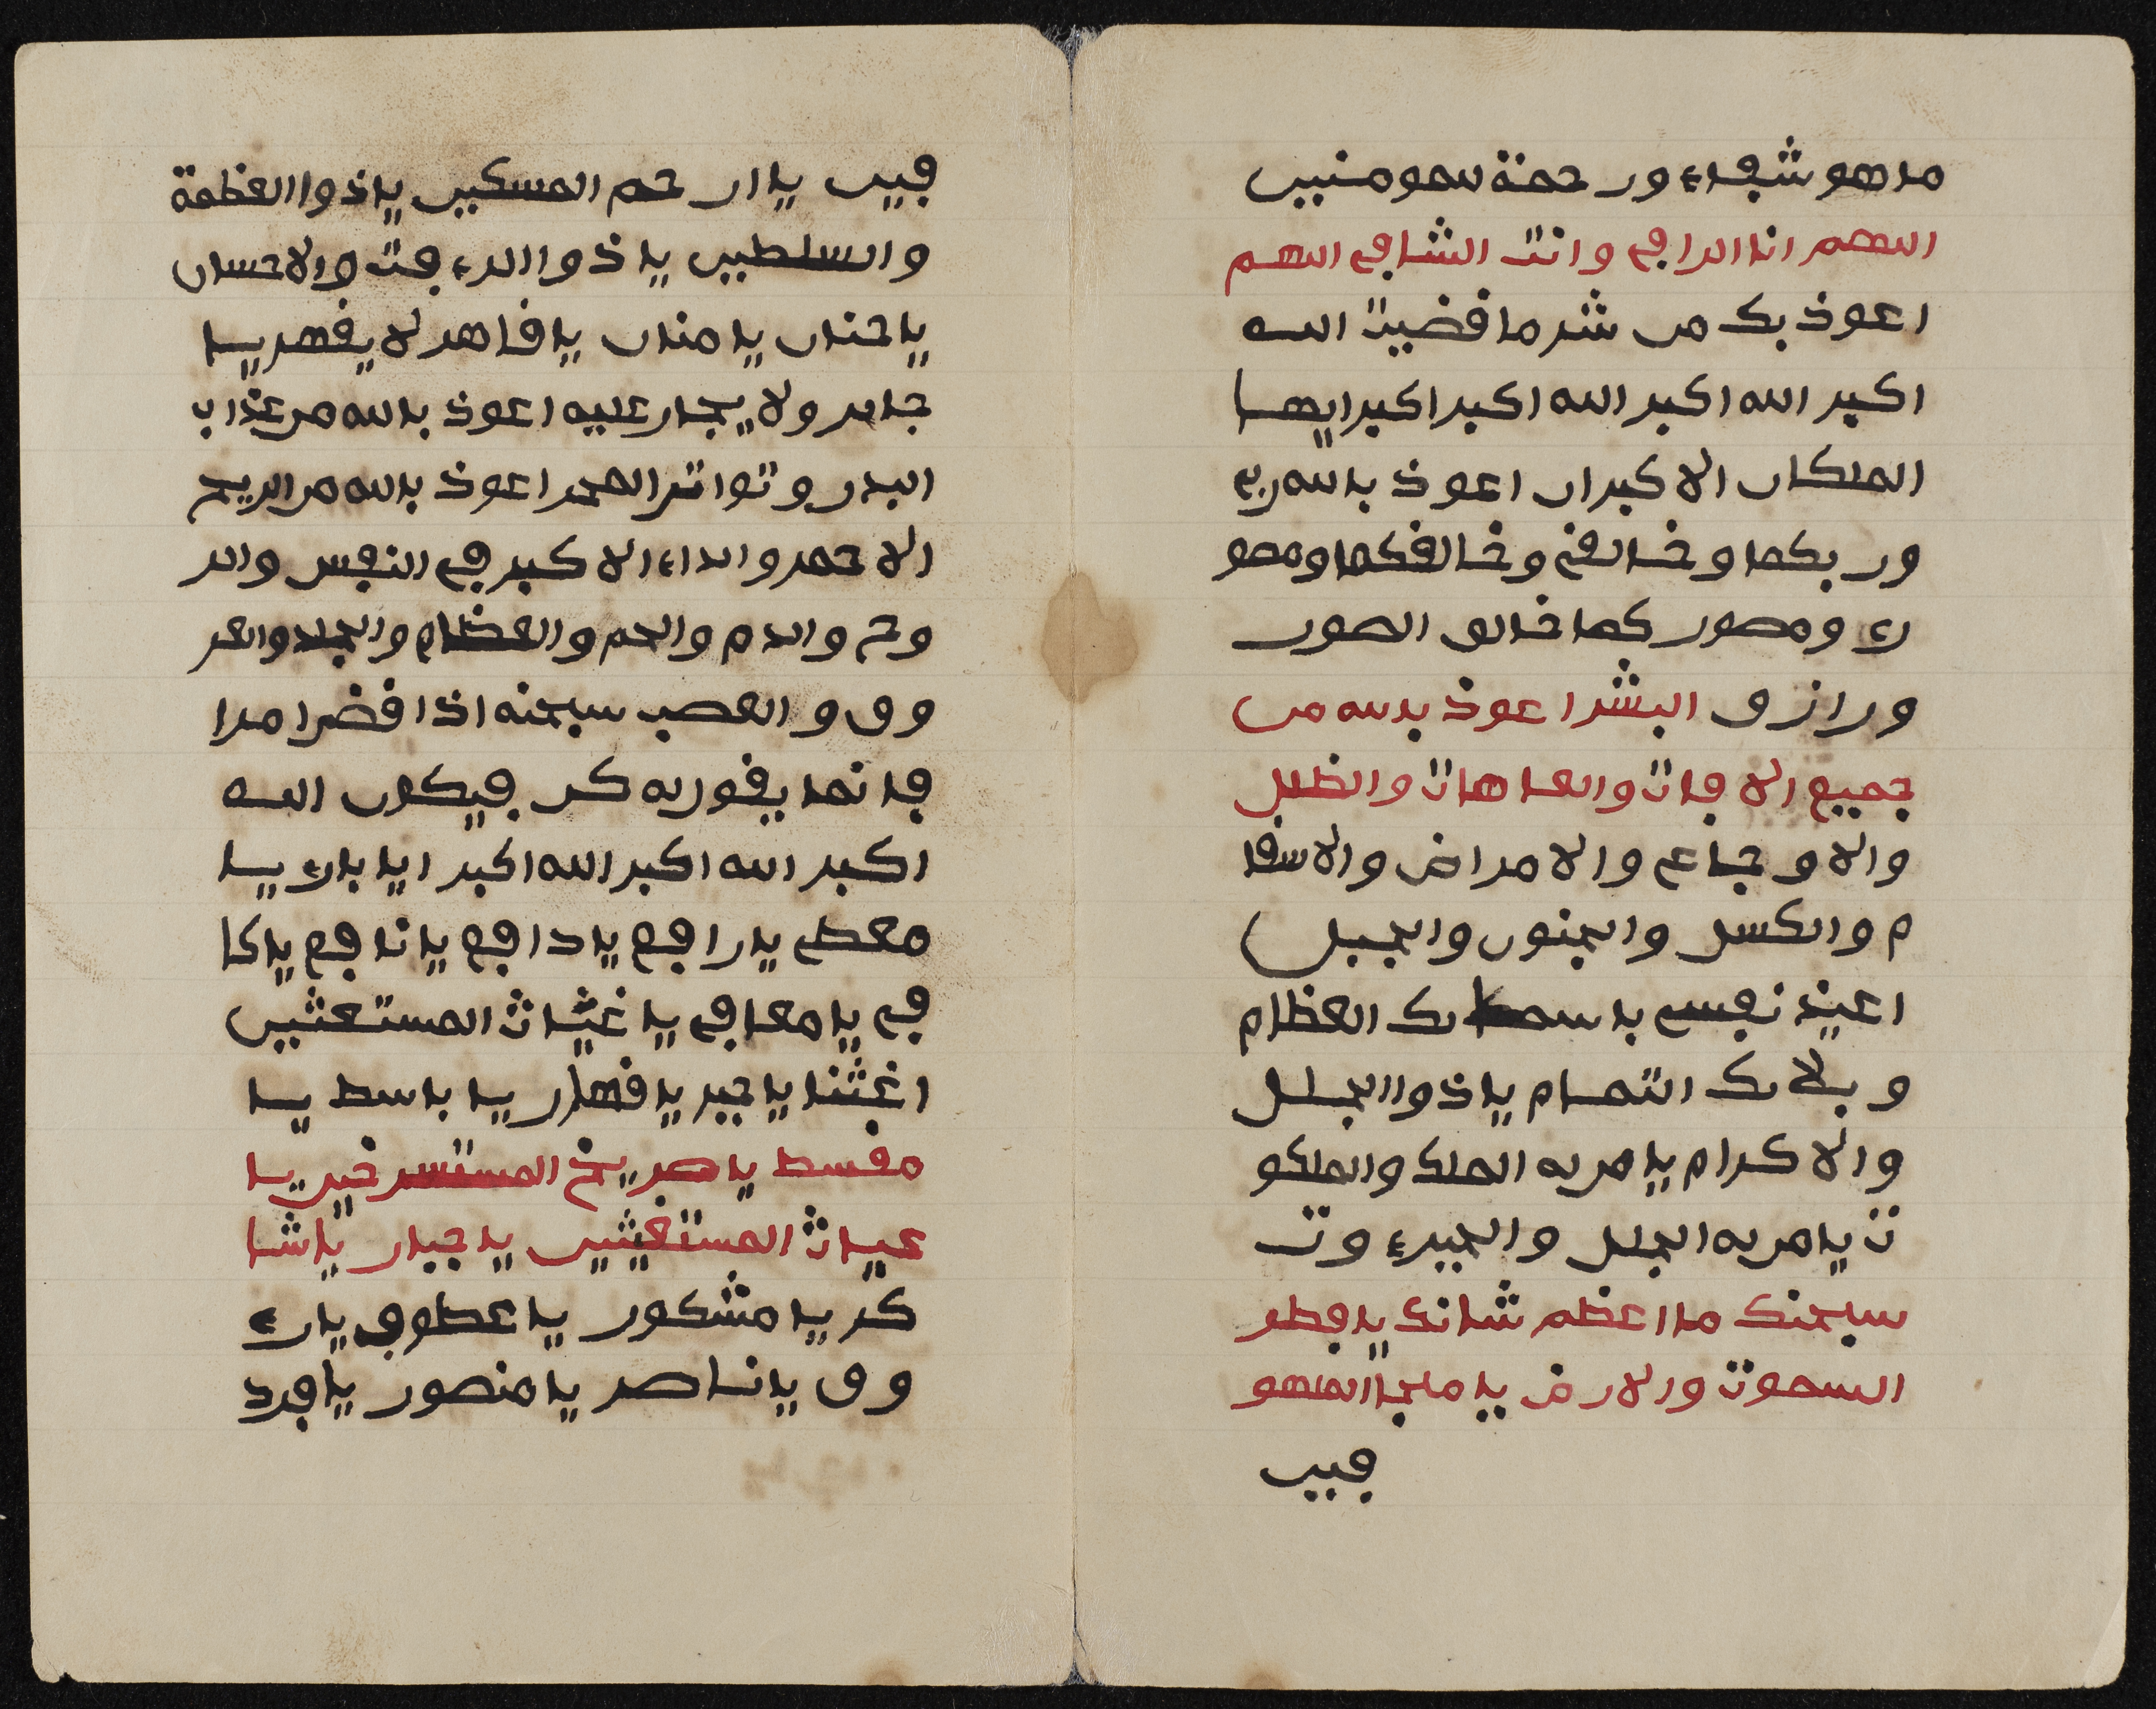 ما هو شفاء ورحمة للمومنين
اللهم انا الراقي وانت الشافي اللهم
اعوذ بك من شر ما قضيت الله
اكبر الله اكبر الله اكبر اكبر ايها
الملكان الاكبران اعوذ بالله ربي
وربكما وخالقي وخالقكما ومصو
ري ومصوركما خالق الصور
ورازق البشر اعوذ بالله من
جميع الافات والعاهات والظلل
والاوجاع والامراض والاسقا
م والكسل والجنون والجبل
اعيذ نفسي باسمائك العظام
وبلائك التمام ياذوالجلل
والاكرام يامن له الملك والملكو
ت يامن له الجلل والجبروت
سبحنك ما اعظم شانك يافطر
السموت ورلارض ياملجا الملهو
فيين
فيين يا ارحم المسكين ياذوا العظمة
والسلطين ياذوا الرءفت والاحسان
ياحنان يامنان ياقاهر لا يقهر يا
جابر ولا يجار عليه اعوذ بالله من عذاب
البدر وتواتر الهجر اعوذ بالله من الريح
الاحمر والداء الاكبر في النفس والر
وح والدم والحم والعظام والجلد والعر
وق والعصب سبحنه اذا قضى امرا
فانما يقول له كن فيكون الله
اكبر الله اكبر الله اكبر ايا باري يا
معطي يارافع يادافع يانافع ياكا
في يامعافي ياغياث المستغثين
اغثنا ياجبر ياقهار يا باسط يا
مقسط ياصريخ المستسرخين يا
غياث المستغيثين ياجبار ياشا
كر يا مشكور ياعطوف يارء
وف ياناصر يامنصور يافرد